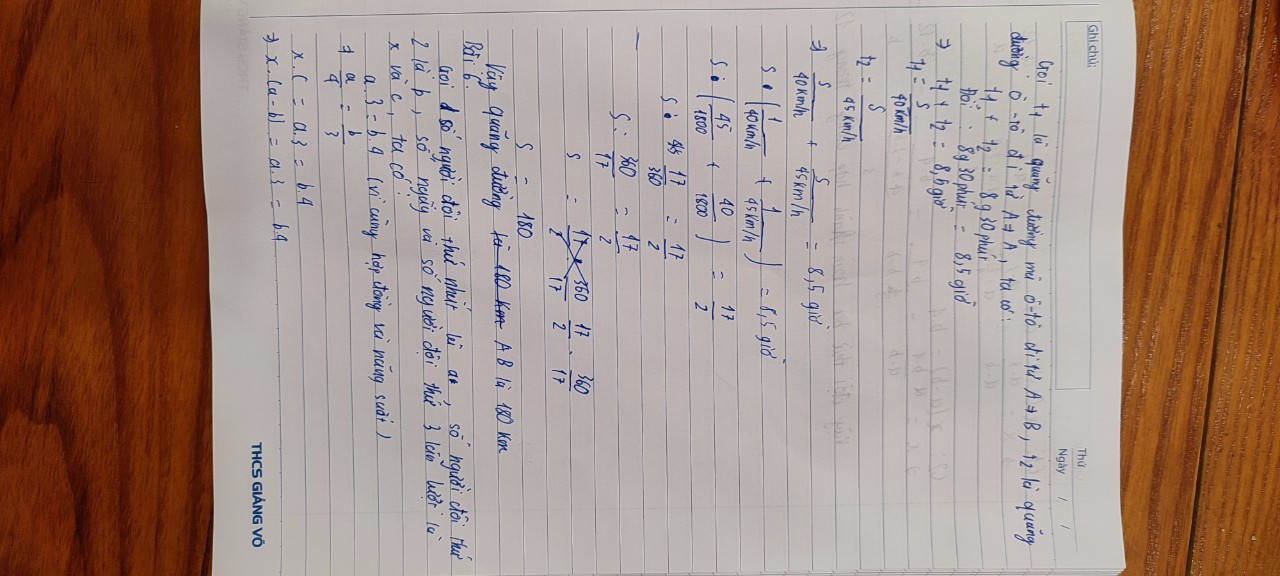 Ghi chú:
Thứ
Ngày / /
Gọi t1 là quãng đường mà ô-tô đi từ A → B, t2 là quãng
đường ô-tô đi từ A → A, ta có:
t1 + t2 = 8g30phút
Đổi: 8g30phút = 8,5 giờ
⇒ t1 + t2 = 8,5 giờ
t1 = S/40km/h
t2 = S/45km/h
⇒ S/40km/h + S/45km/h = 8,5 giờ
S . (1/40km/h + 1/45km/h) = 8,5 giờ
S . (45/1800 + 40/1800) = 17/2
S . 17/360 = 17/2
S : 360/17 = 17/2
S = 17/2 . 360/17
S = 180
Vậy quãng đường AB là 180 km
Bài 6:
Gọi số người đội thứ nhất là a, số người đội thứ
2 là b, số ngày và số người đội thứ 3 lần lượt là
x và c, ta có:
a.3 = b.4 (vì cùng hợp đồng và năng suất)
⇒ a/4 = b/3
x.c = a.3 = b.4
⇒ x.(a-b) = a.3 = b.4
THCS GIẢNG VÕ